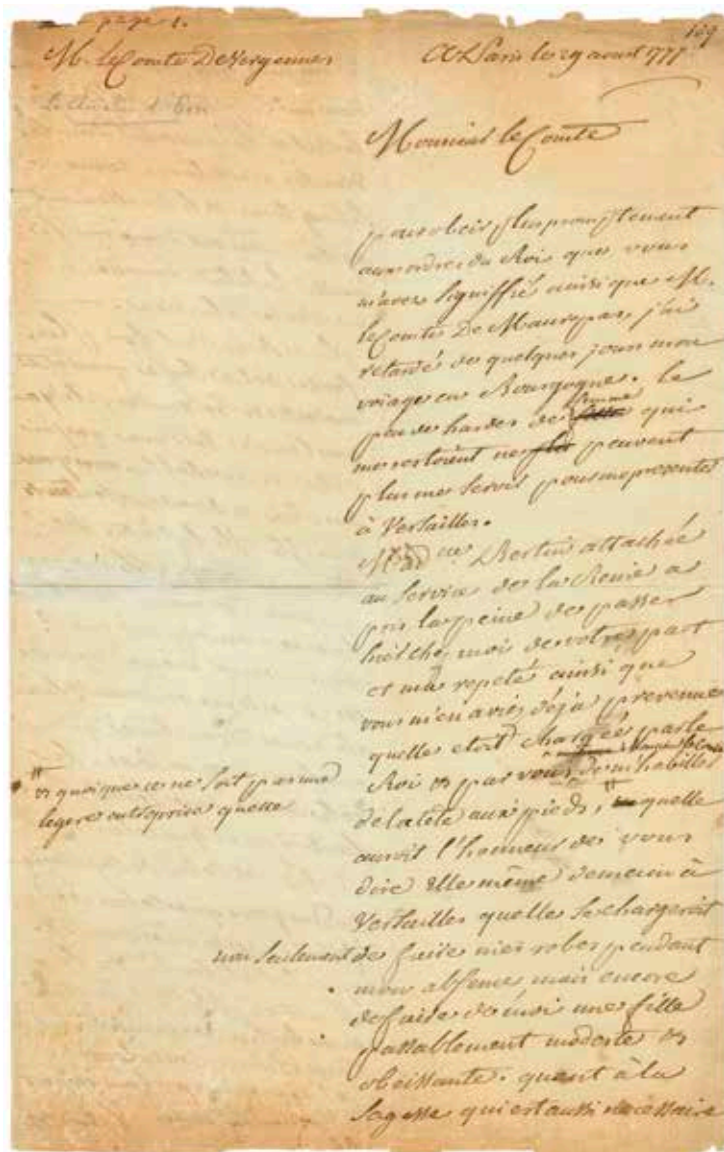 page 1.
189
M. le Comte De Vergennes
A Paris le 29 aoust 1777
Le Chevalier d'Eon
Monsieur le Comte
pour obeir plus promptement
aux ordres du Roi que vous
m'avez signiffié ainsi que M.
le Comte De Maurepas, j'ai
retardé de quelques jours mon
voiage en Bourgogne. le
femme
peu de hardes de fille qui
me restoient ne peuvent
plus me servir pour me presenter
à Versailles.
Bertin attachée
au service de la Reine a
pris la peine de passer
hier chez moi de votre part
et m'a repeté ainsi que
vous m'en aviés déjà prevenue
quelle etoit chargée par le
Roi et par vous de m'habiller
et quoique ce ne soit pas une
legere entreprise quelle
de la tete aux pieds, quelle
auroit l'honneur de vous
dire Elle même demain à
Versailles quelle se chargeroit
non seulement de faire mes robes pendant
mon absence mais encore
de faire de moi une fille
passablement modeste et
obeissante. quant à la
sagesse qui est aussi necessaire